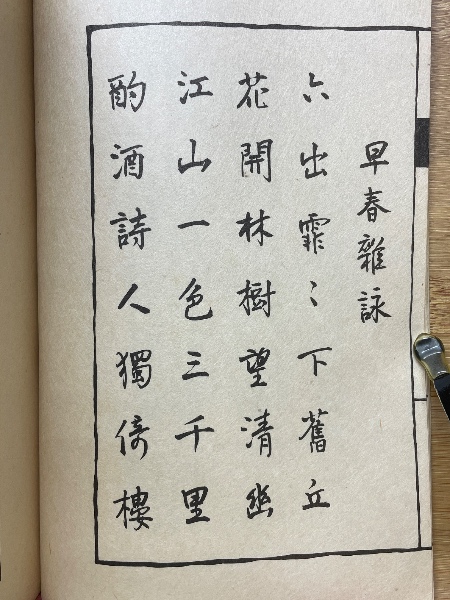 早春雜詠
六出霏〻下舊丘
花開林樹望清幽
江山一色三千里
酌酒詩人獨倚樓